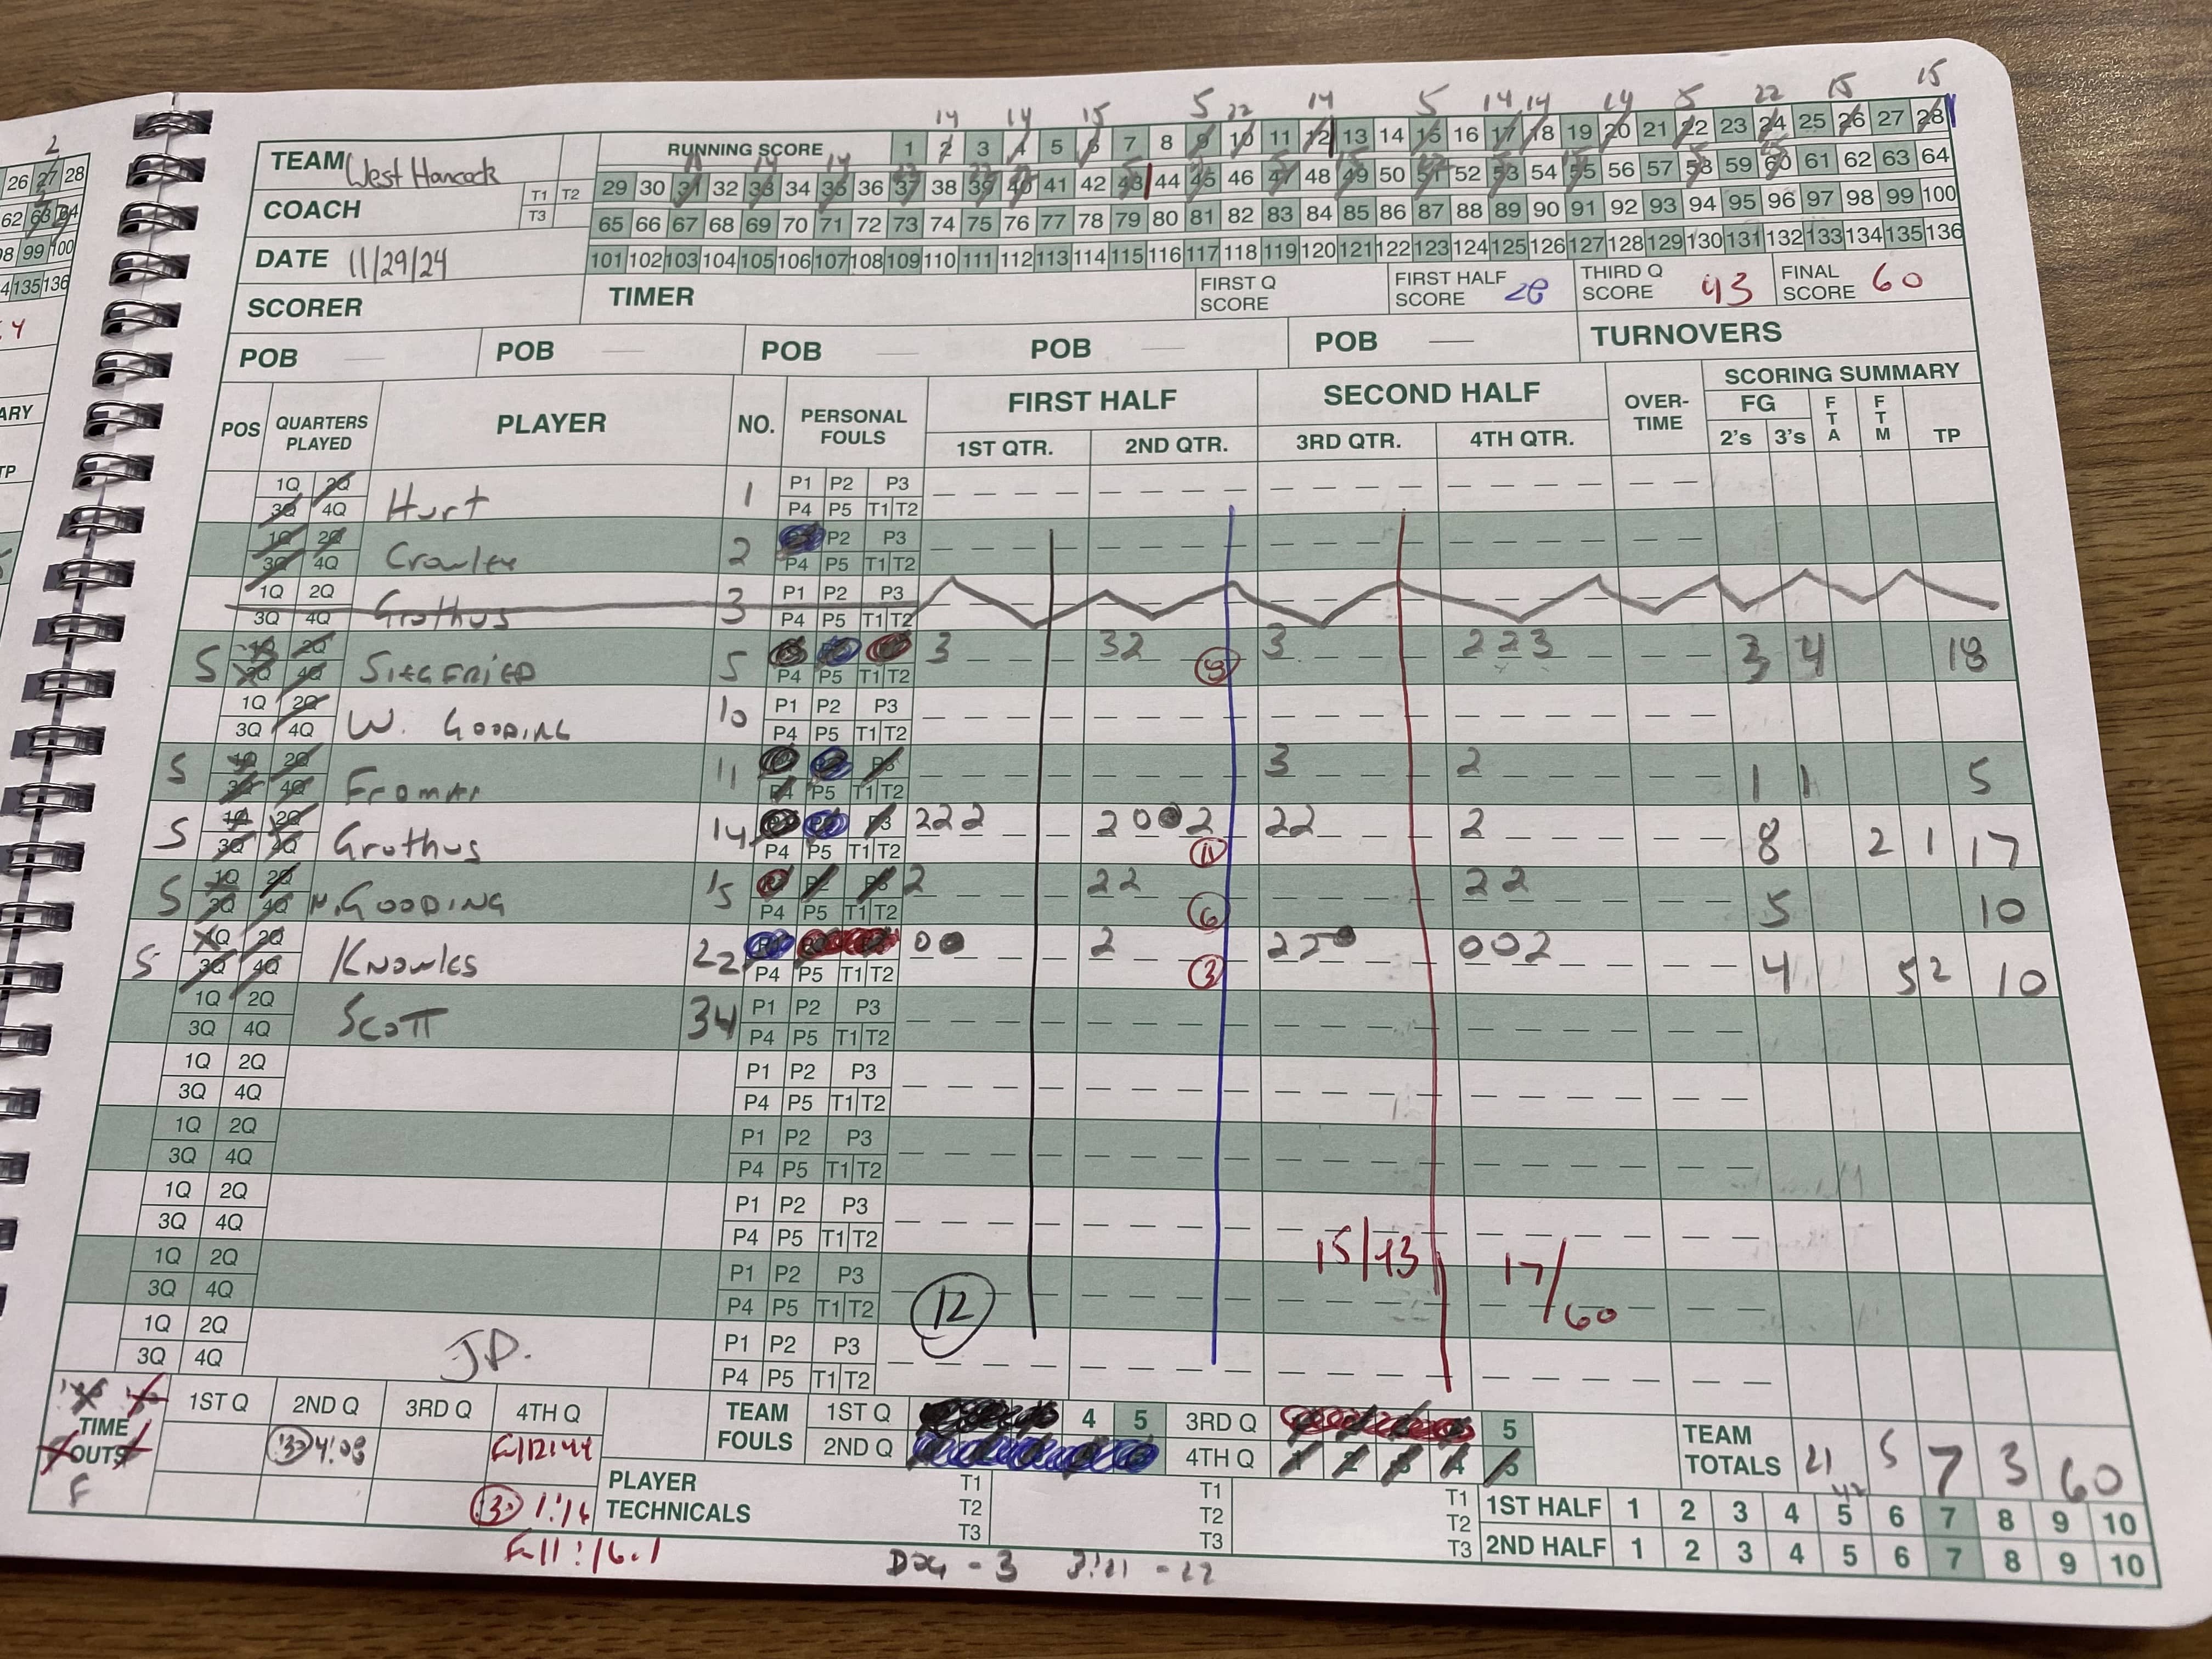 14 14 15 5 22 14 5 14 14 14 5 22 15 15
TEAM West Hancock RUNNING SCORE 1 2 3 4 5 6 7 8 9 10 11 12 13 14 15 16 17 18 19 20 21 22 23 24 25 26 27 28
T1 T2 29 30 31 32 33 34 35 36 37 38 39 40 41 42 43 44 45 46 47 48 49 50 51 52 53 54 55 56 57 58 59 60 61 62 63 64
COACH T3 65 66 67 68 69 70 71 72 73 74 75 76 77 78 79 80 81 82 83 84 85 86 87 88 89 90 91 92 93 94 95 96 97 98 99 100
DATE 11/29/24 101 102 103 104 105 106 107 108 109 110 111 112 113 114 115 116 117 118 119 120 121 122 123 124 125 126 127 128 129 130 131 132 133 134 135 136
SCORER TIMER FIRST Q SCORE FIRST HALF SCORE 28 THIRD Q SCORE 43 FINAL SCORE 60
POB POB POB POB POB TURNOVERS
POS QUARTERS PLAYED PLAYER NO. PERSONAL FOULS FIRST HALF SECOND HALF OVER-TIME SCORING SUMMARY
1ST QTR. 2ND QTR. 3RD QTR. 4TH QTR. FG 2's 3's FTA FTM TP
1Q 2Q Hurt 1 P1 P2 P3
3Q 4Q P4 P5 T1 T2
1Q 2Q Crowley 2 P2 P3
3Q 4Q P4 P5 T1 T2
1Q 2Q Grothus 3 P1 P2 P3
3Q 4Q P4 P5 T1 T2
S 1Q 2Q SIEGFRIED 5 3 32 3 2 2 3 3 4 18
3Q 4Q P4 P5 T1 T2 9
1Q 2Q W. GOODING 10 P1 P2 P3
3Q 4Q P4 P5 T1 T2
S 1Q 2Q 11 P3 3 2 1 1 5
3Q 4Q P4 P5 T1 T2
S 1Q 2Q Grothus 14 P3 2 2 2 2 0 2 2 2 2 8 2 1 17
3Q 4Q P4 P5 T1 T2 11
S 1Q 2Q N. GOODING 15 P2 P3 2 2 2 2 2 5 10
3Q 4Q P4 P5 T1 T2 6
S 1Q 2Q Knowles 22 P1 0 2 2 2 0 0 2 4 5 2 10
3Q 4Q P4 P5 T1 T2 3
1Q 2Q SCOTT 34 P1 P2 P3
3Q 4Q P4 P5 T1 T2
1Q 2Q P1 P2 P3
3Q 4Q P4 P5 T1 T2
1Q 2Q P1 P2 P3
3Q 4Q P4 P5 T1 T2
1Q 2Q P1 P2 P3
3Q 4Q P4 P5 T1 T2 15/43 17/60
1Q 2Q P1 P2 P3
3Q 4Q P4 P5 T1 T2 12
1Q 2Q J.D. P1 P2 P3
3Q 4Q P4 P5 T1 T2
TIME OUTS 1ST Q 2ND Q 3RD Q 4TH Q TEAM FOULS 1ST Q 4 5 3RD Q 5 TEAM TOTALS 21 5 7 3 60
F 30 4:03 2ND Q 4TH Q 1 2 3 4 5 42
30 1:16 PLAYER TECHNICALS T1 T2 T3 T1 T2 T3 T1 T2 T3 1ST HALF 1 2 3 4 5 6 7 8 9 10
F-11:16.1 2ND HALF 1 2 3 4 5 6 7 8 9 10